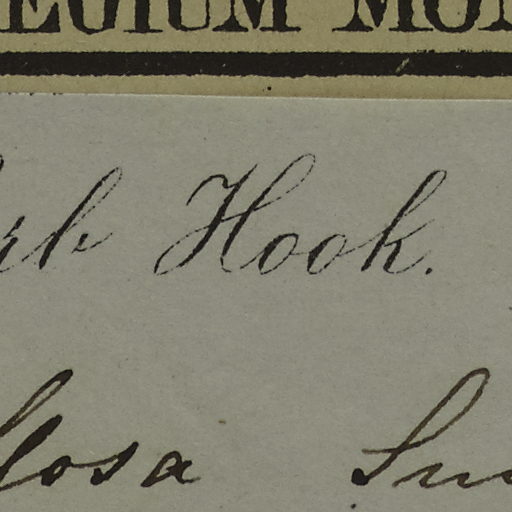 EGIUM MO
rb Hook.
losa Su